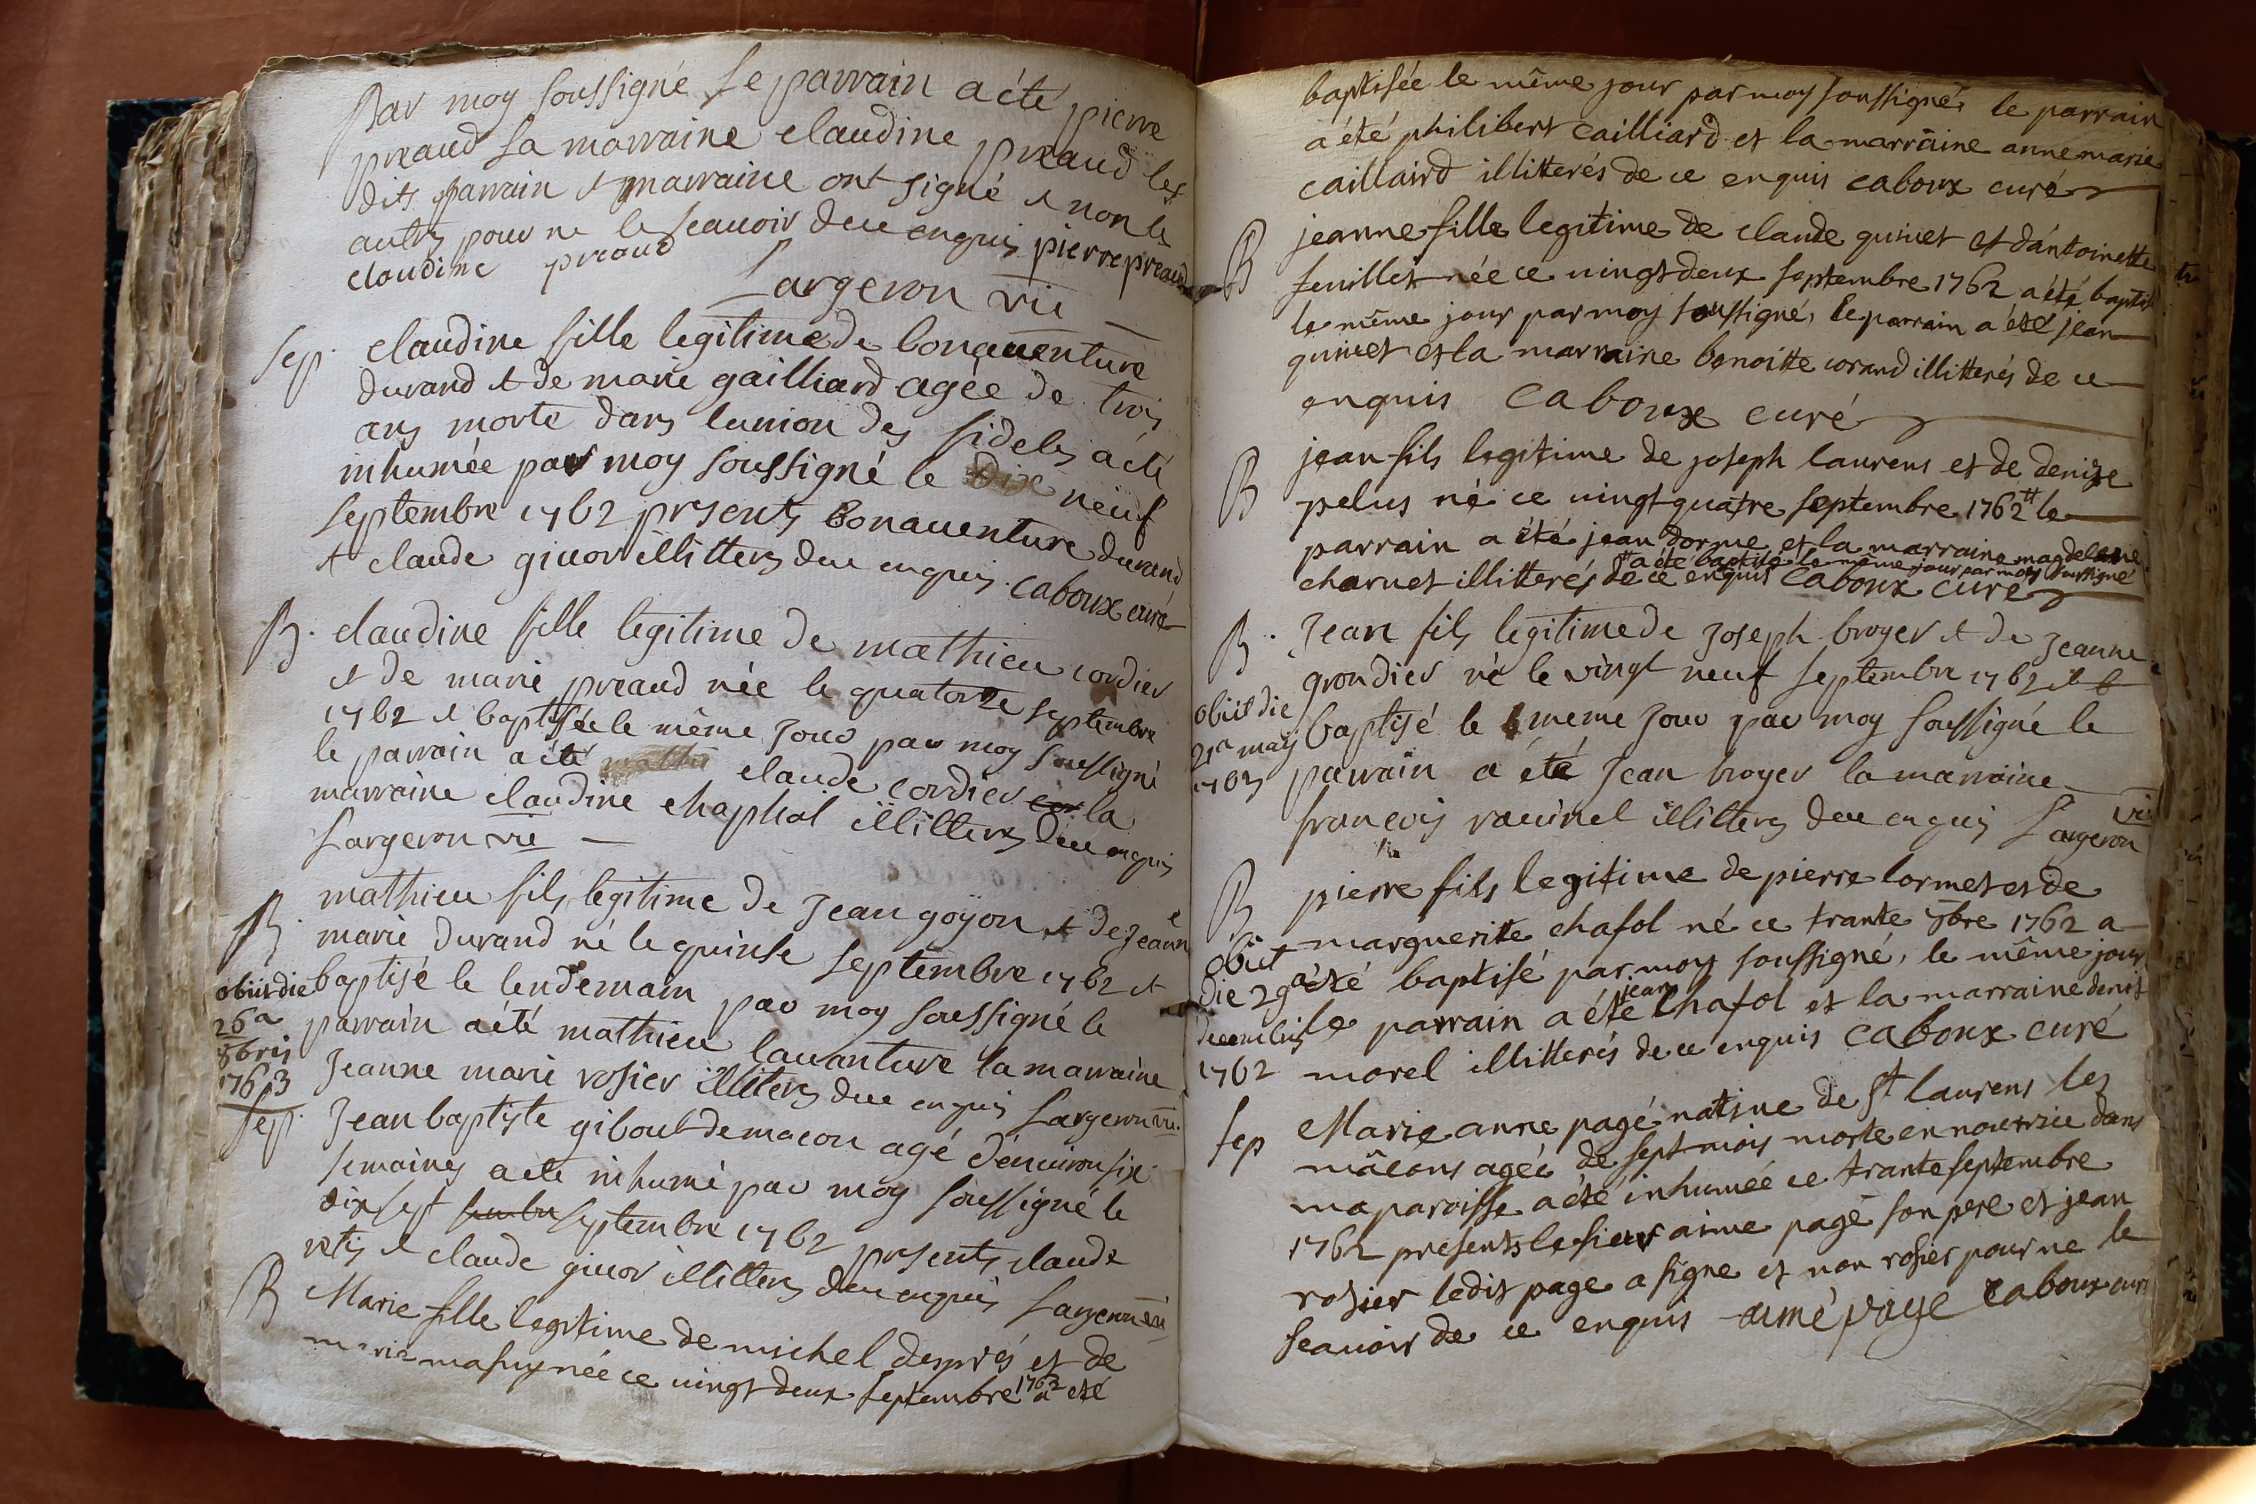 Par moy soussigné le parrain a été pierre
preaud la marraine claudine preaud les
dits parrain et marraine ont signé et non les
autres pour ne le scauoir de ce enquis pierre preaud
claudine preaud
Largeron vic
sep. claudine fille legitime de bonauenture
durand et de marie gailliard agée de trois
ans morte dans lunion des fideles a été
inhumée par moy soussigné le dix neuf
septembre 1762 presents bonauenture durand
et claude giuor illitterés de ce enquis. caboux curé
B. claudine fille legitime de mathieu cordier
et de marie preaud née le quatorze septembre
1762 et baptisée le même jour par moy soussigné
le parrain a été claude cordier la
marraine claudine chaphol illitterés de ce enquis
Largeron vic
B. mathieu fils legitime de Jean goyon et de Jeanne
marie durand né le quinse septembre 1762 et
obiit die baptisé le lendemain par moy soussigné le
26a parrain a été mathieu lauanture la marraine
8bris Jeanne marie rosier illiterés de ce enquis Largeron vic.
1763
sep. Jean baptiste giboul de macon agé d'enuiron six
semaines a été inhumé par moy soussigné le
dix sept septembre 1762 presents claude
et claude giuor illitterés de ce enquis Largeron vic
B Marie fille legitime de michel després et de
marie masuy née ce uingt deux septembre 1762 a eté
baptisée le même jour par moy soussigné, le parrain
a été philibert cailliard et la marraine anne marie
caillaird illitterés de ce enquis caboux curé
B jeanne fille legitime de claude quiuet et d'antoinette
feuillet née ce uingt deux septembre 1762 a été baptisé
le même jour par moy soussigné, le parrain a été jean
quiuet et la marraine benoitte corand illitterés de ce
enquis caboux curé
B jean fils legitime de joseph laurens et de denize
pelus né ce uingt quatre septembre 1762 # le
parrain a été jean dorme et la marraine magdelaine
# a été baptisé le même jour par moy soussigné
charuet illitterés de ce enquis caboux curé
B. Jean fils legitime de Joseph broyer et de Jeanne
grondier né le vingt neuf septembre 1762 et
obiit die baptisé le meme jour par moy soussigné le
21a maij parrain a été Jean broyer la marraine
francois rauinel illitterés de ce enquis Largeron vic
B pierre fils legitime de pierre lormet et de
marguerite chafol né ce trante 7bre 1762 a
obiit
die 29a été baptisé par moy soussigné, le même jour
decembris le parrain a été jean chafol et la marraine denise
1762 morel illitterés de ce enquis caboux curé
sep Marie anne pagé natiue de St laurens lez
mâcons agée de sept mois morte en nourrice dans
ma paroisse a été inhumée ce trante septembre
1762 presents le sieur aime pagé son pere et jean
rosier ledit page a signe et non rosier pour ne le
scauoir de ce enquis aimé page caboux curé